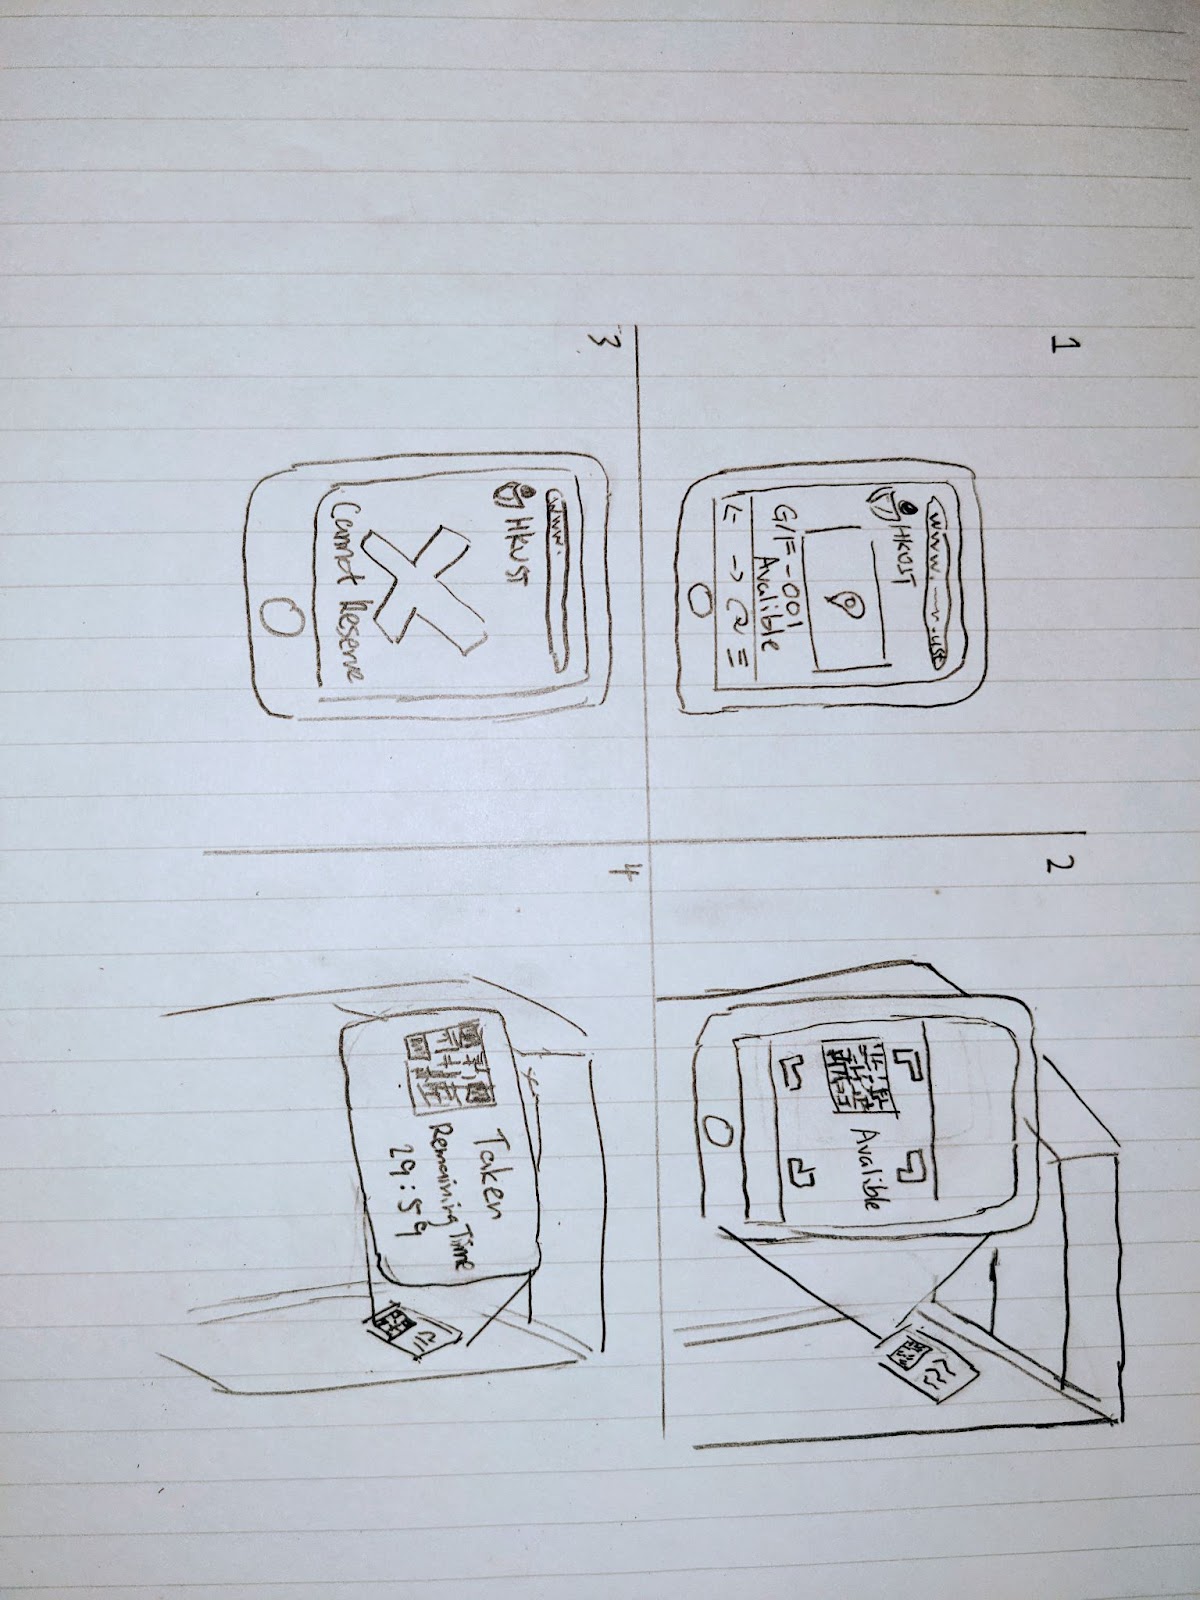 1
www. ~.ust
HKUST
G/F-001
Avalible
2
Avalible
3
www.
HKUST
Cannot Reserve
4
Taken
Remaining Time
29:59